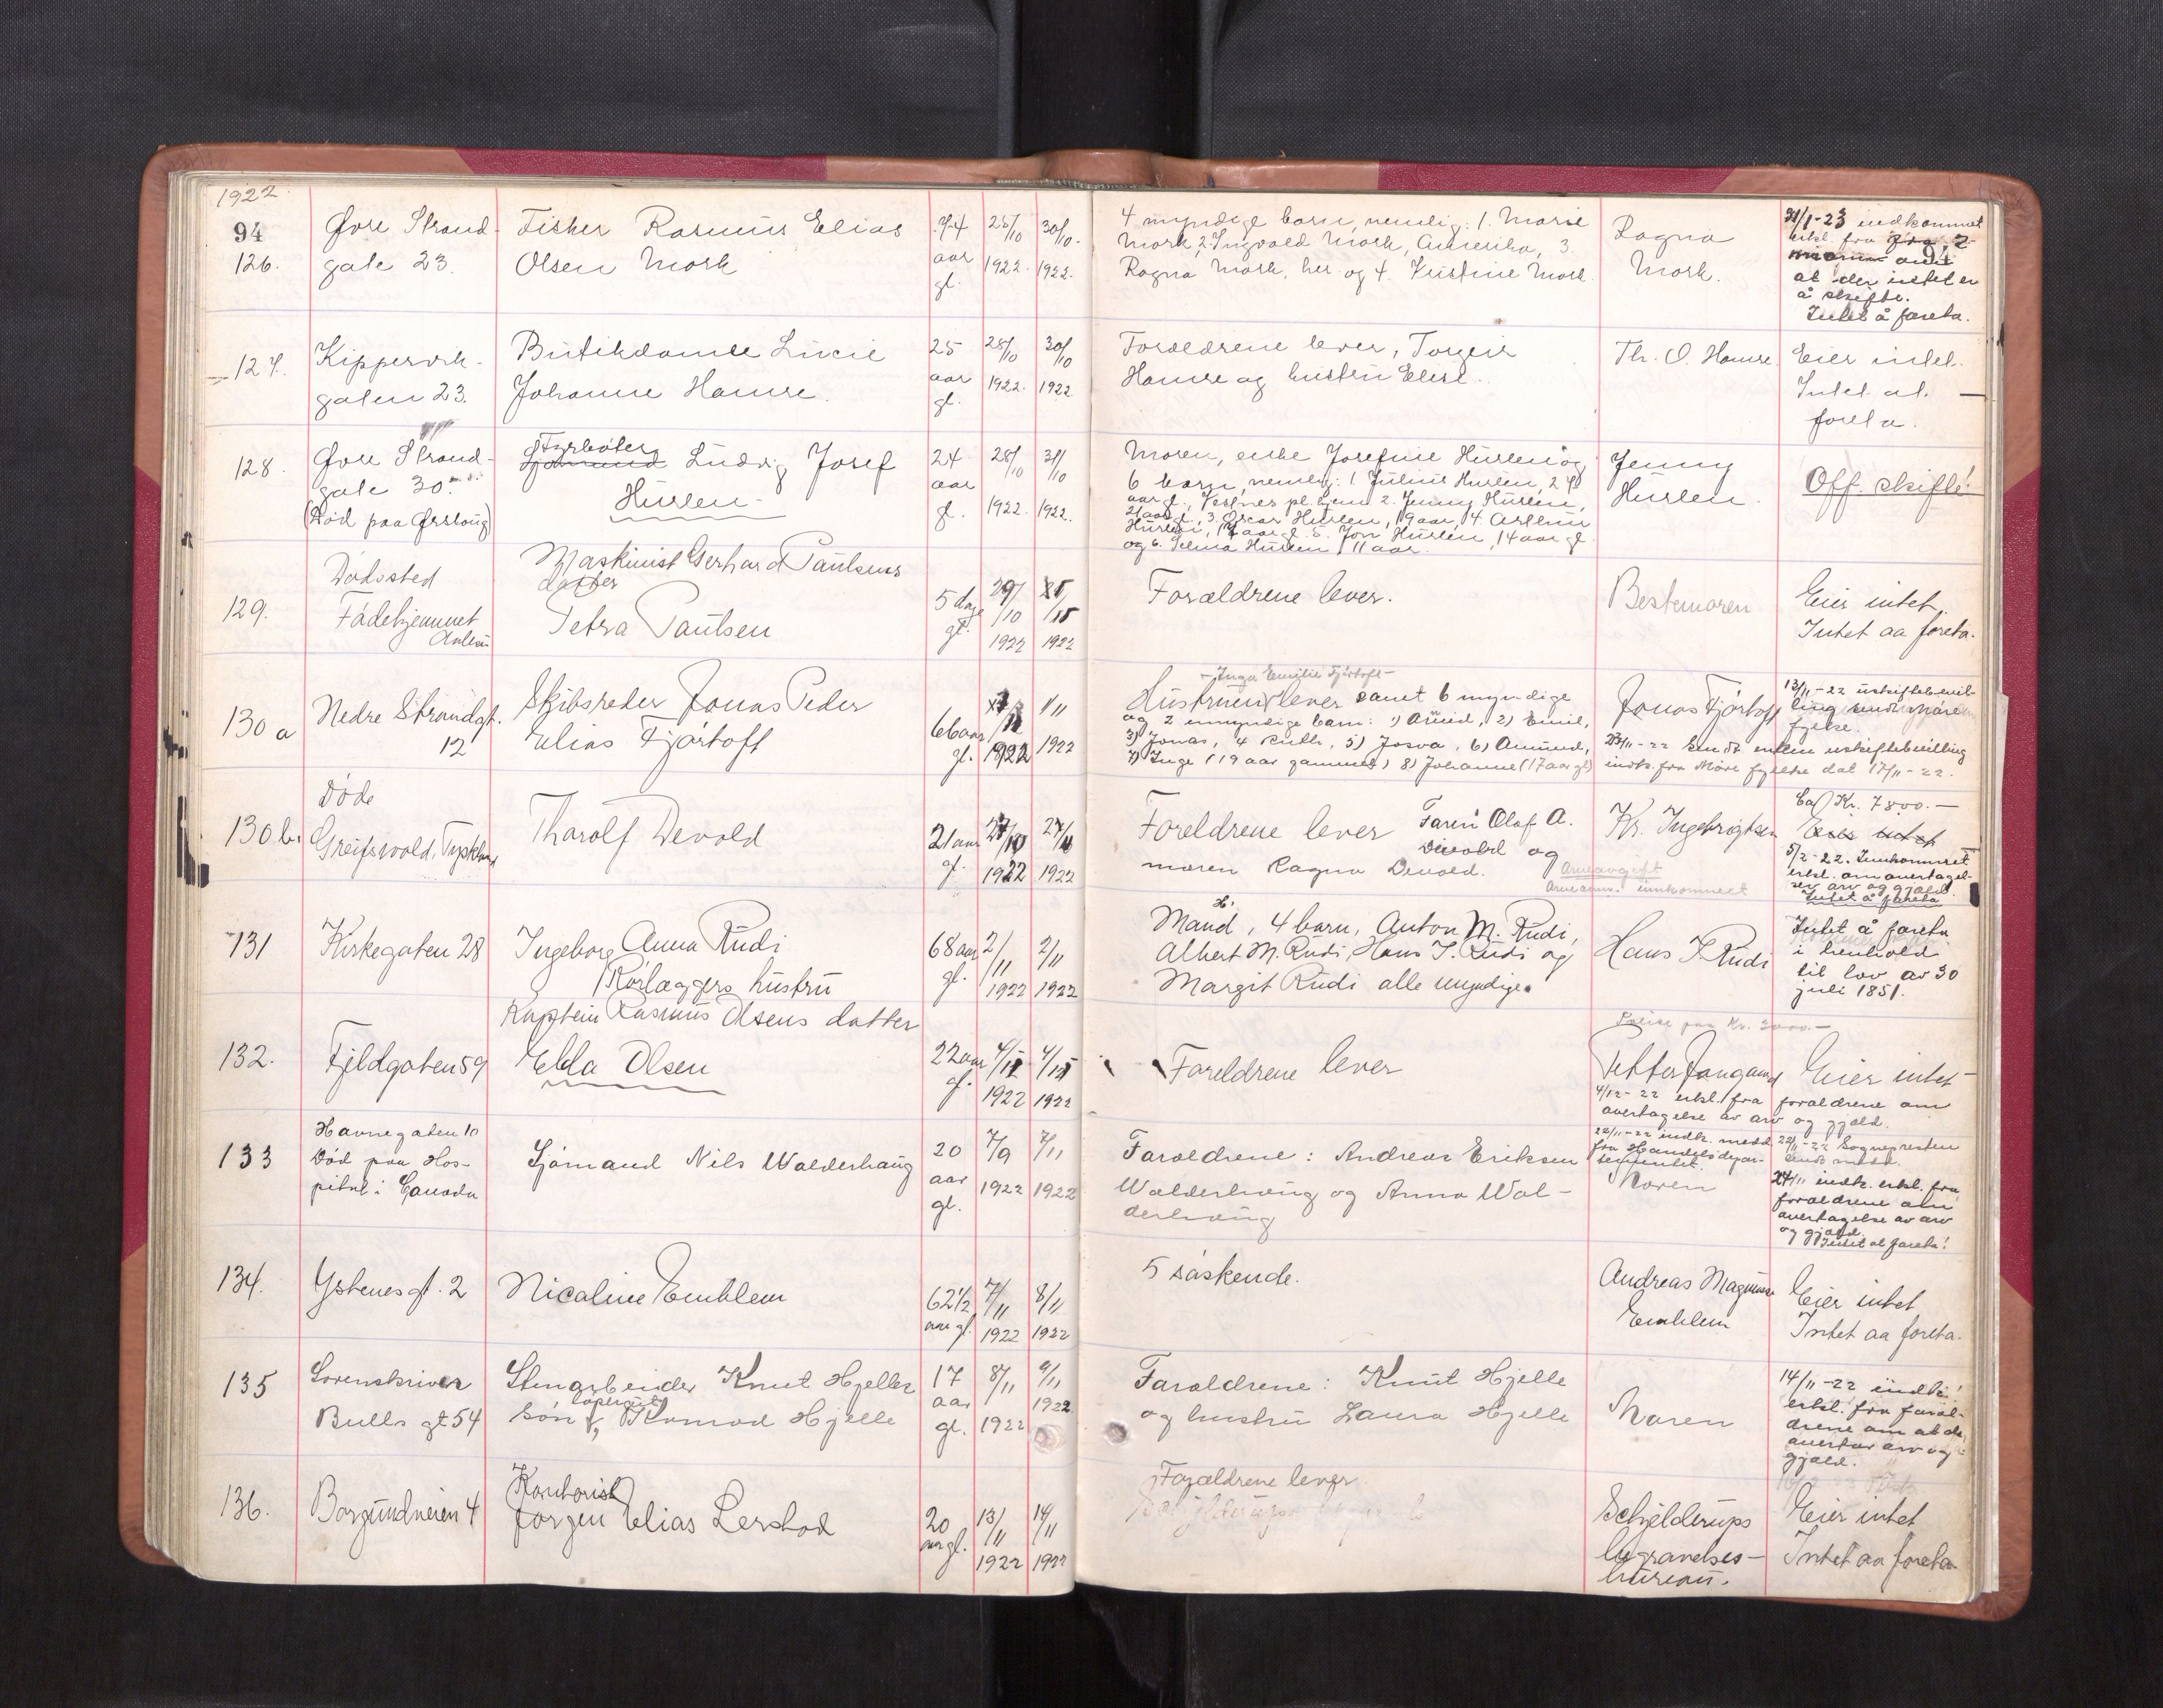 1922
94
126. Øvre Strand-
gate 23.
Fisker Rasmus Elias
Olsen Mork
74
aar
gl.
25/10
1922.
30/10.
1922.
4 myndige barn, nemlig: 1. Marie
Mork, 2 Ingvald Mork, Amerika, 3.
Ragna Mork, her og 4. Kristine Mork.
Ragna
Mork.
31/1-23 indkommet
erkl. fra
94
at der intet er
å skifte.
Intet å foreta.
127. Kippervik-
gaten 23.
Butikdame Lucie
Johanne Hamre.
25
aar
gl.
28/10
1922.
30/10
1922
Forældrene lever, Torgeir
Hamre og hustru Elise.
Th. O. Hamre.
Eier intet.
Intet at
foreta.
128. Øvre Strand-
gate 30.
(Død paa Ørstoug)
Fyrbøter
Sjømand Ludvig Josef
Hurlen
24
aar
gl.
28/10
1922.
31/10
1922.
Moren, enke Josefine Hurlen og
6 barn, nemlig: 1 Julius Hurlen, 24
aar gl., Vestnes pl. hjem 2. Jenny Hurlen,
21 aar gl., 3. Oscar Hurlen, 19 aar, 4.
Hurlen, 17 aar gl. 5. Jon Hurlen, 14 aar gl
og 6. Selma Hurlen 11 aar.
Jenny
Hurlen.
Off. skifte!
129. Dødssted
Fødehjemmet
Maskinist Gerhard Paulsens
datter
Petra Paulsen
5 dage
gl.
29/10
1922
1922
Forældrene lever.
Bestemoren
Eier intet.
Intet aa foreta.
130 a Nedre Strandgt.
12
Skibsreder Jonas Peder
Elias Fjørtoft
66 aar
gl.
1922
1/11
1922
- Inga Emilie Fjørtoft -
Hustruen lever samt 6 myndige
og 2 umyndige barn: 1) Amund, 2) Emil,
3) Jonas, 4 Ruth, 5) Josva, 6) Amund,
7) Inge (19 aar gammel) 8) Johanne (17 aar gl)
Jonas Fjørtoft
13/11-22 uskiftebevil-
ling sendt Møre
fylke.
23/11-22 sendt enken uskiftebevilling
indk. fra Møre fylke dat 17/11-22.
130 b. Døde
Greifswald, Tyskland
Tharolf Devold
21 aar
gl.
1922
1922
Foreldrene lever Faren Olaf A.
Devold og
moren Ragna Devold.
Arveavgift
innkommet
Kr. Ingebrigtsen
Ca) Kr. 7800.-
Eier intet
5/2-22. Innkommet
erkl. om overtagel-
se av arv og gjæld.
Intet å foreta
131 Kirkegaten 28
Ingeborg Anna Rudi
Rørlæggers hustru
68 aar
gl.
2/11
1922
2/11
1922
Mand, 4 barn, Anton M. Rudi,
Albert M. Rudi, Hans J. Rudi og
Margit Rudi alle myndige.
Hans J Rudi
Intet å foreta
i henhold
til lov av 30
juli 1851.
132. Fjeldgaten 59
Kaptein Rasmus Olsens datter
Ebba Olsen
22 aar
gl.
1922
1922
Foreldrene lever
paa Kr. 2000.-
Petter Jangaard
Eier intet
4/12-22 erkl. fra foraldrene om
overtagelse av arv og gjæld.
133 Havnegaten 10
Død paa Hos-
pital i Canada
Sjømand Nils Walderhaug
20
aar
gl.
7/9
1922
7/11
1922
Forældrene: Andreas Eriksen
Walderhaug og Anna Wal-
derhaug
22/11-22 indk. medd.
fra Handelsdepar-
tementet.
Moren
22/11-22 Sognepresten
sendt medd.
24/11 indk. erkl. fra
foraldrene om
overtagelse av arv
og gjæld.
Intet at foreta!
134. Ystenesgt. 2
Nicoline Emblem
62 1/2
aar gl.
7/11
1922
8/11
1922
5 søskende.
Andreas Magnus
Emblem
Eier intet
Intet aa foreta.
135 Sorenskriver
Bulls gt 54
Stenarbeider Knut Hjelles
søn, løpergut Konrad Hjelle
17
aar
gl.
8/11
1922
9/11
1922.
Forældrene: Knut Hjelle
og hustru Laura Hjelle
Moren
14/11-22 indk.
erkl. fra foræl-
drene om at de
overtar arv og
gjæld.
136. Borgundveien 4
Kontorist
Jørgen Elias Lerstad
20
aar gl.
13/11
1922
14/11
1922
Forældrene lever.
Schjelderups
begravelses-
bureau.
Eier intet
Intet aa foreta